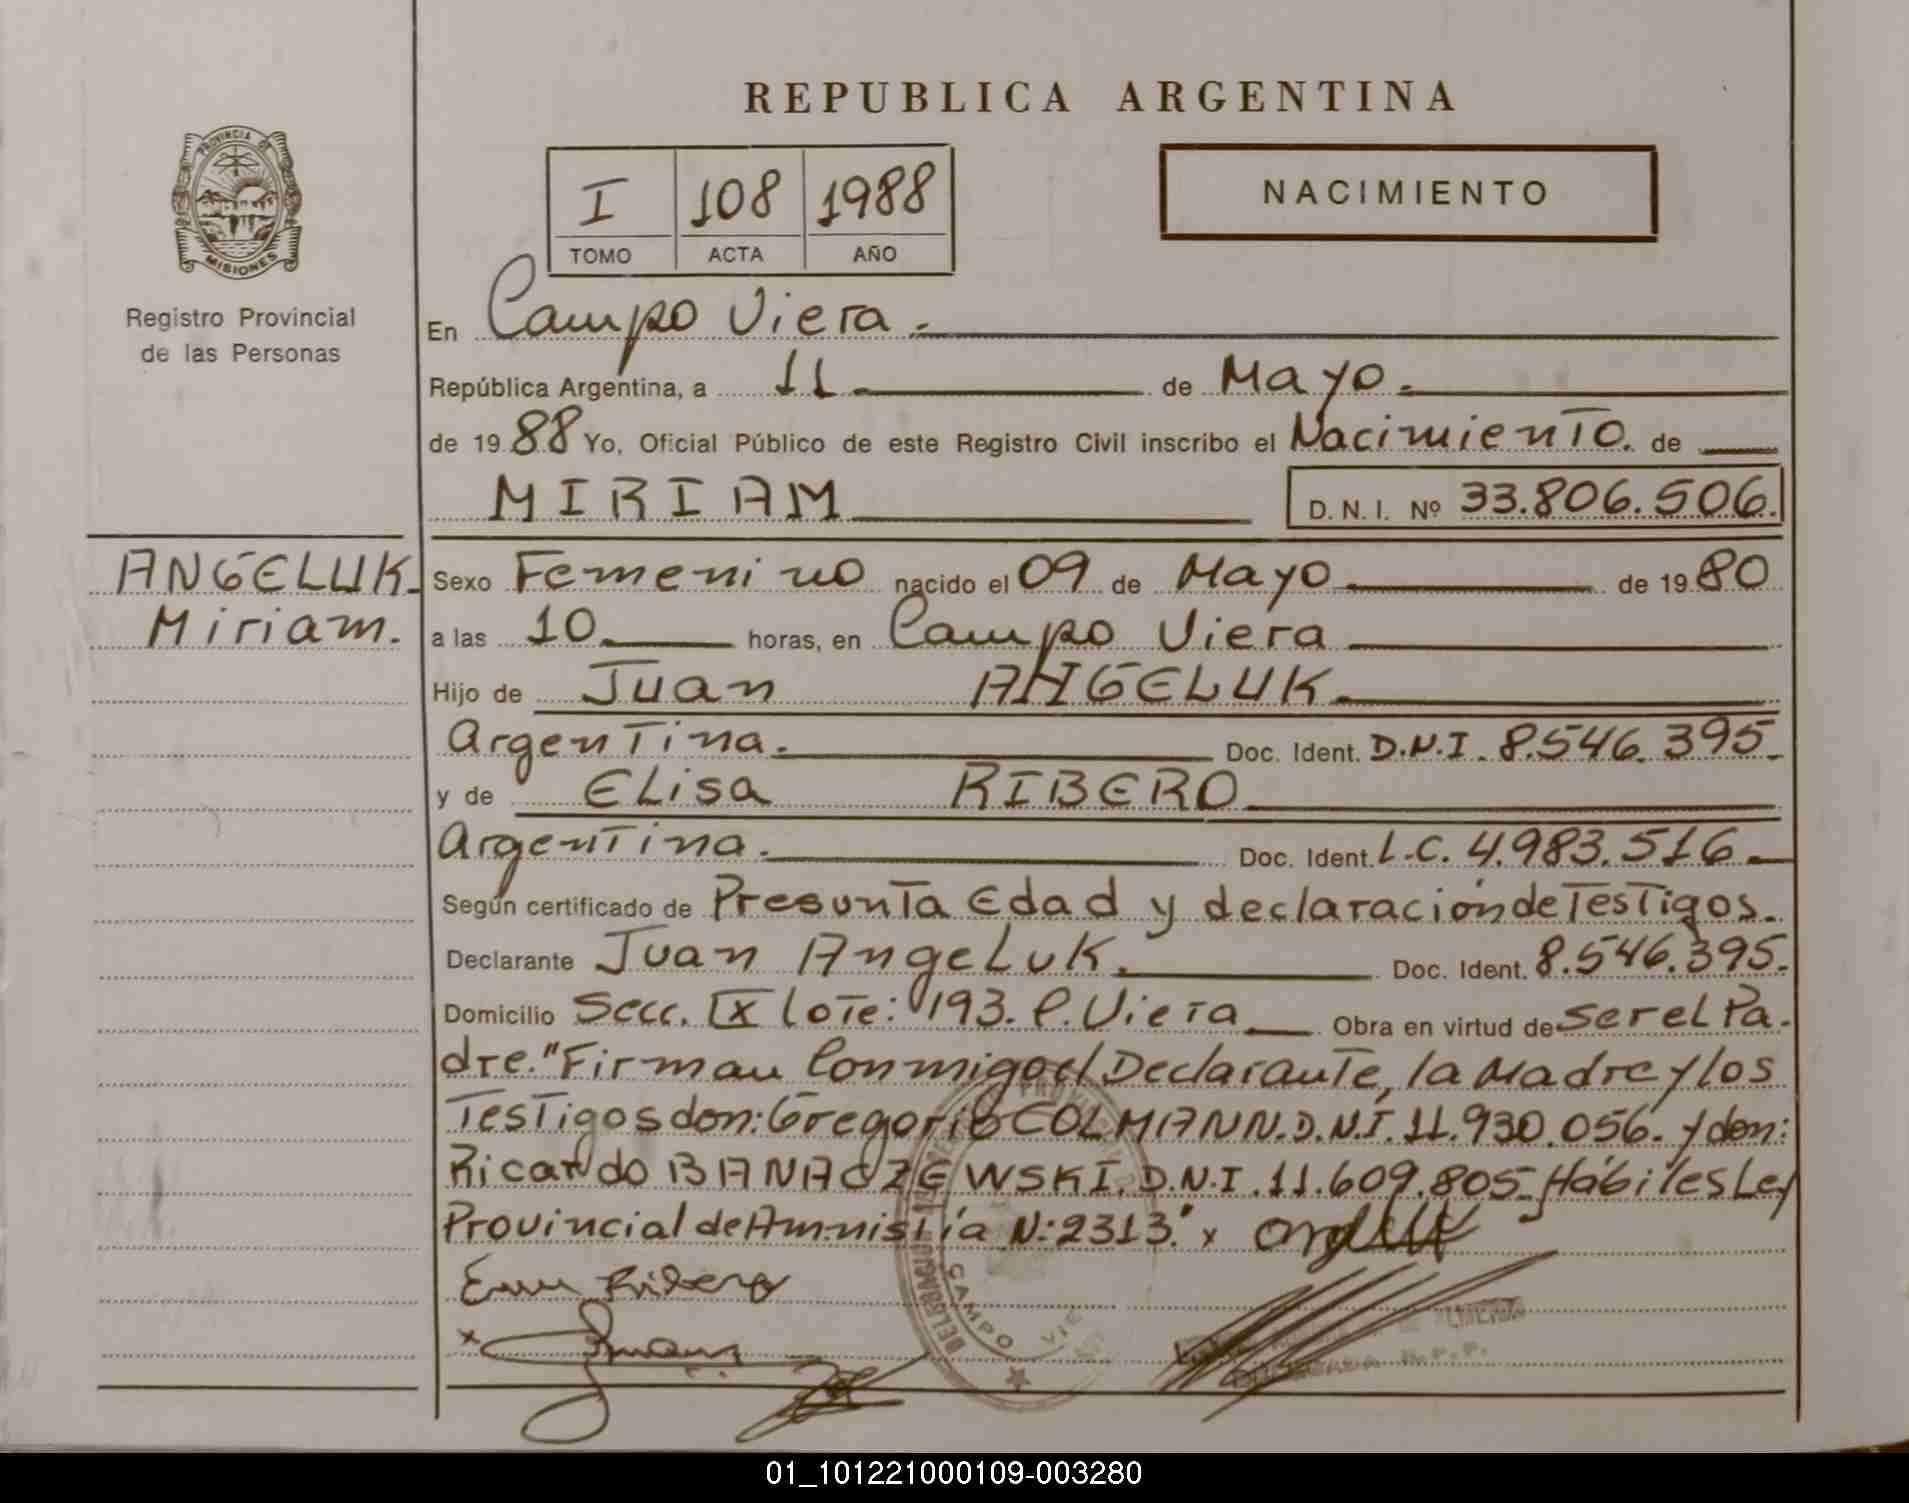 REPUBLICA ARGENTINA
PROVINCIA DE
MISIONES
Registro Provincial
de las Personas
I 108 1988
TOMO ACTA AÑO
NACIMIENTO
En Campo Viera.
República Argentina, a 11 de Mayo.
de 1988 Yo, Oficial Público de este Registro Civil inscribo el Nacimiento. de
MIRIAM D. N. I. Nº 33.806.506.
ANGELUK.
Miriam.
Sexo Femenino nacido el 09 de Mayo de 1980
a las 10. horas, en Campo Viera
Hijo de Juan ANGELUK.
Argentina. Doc. Ident. D.N.I. 8.546.395.
y de ELisa RIBERO
Argentina. Doc. Ident. L.C. 4.983.516.
Según certificado de Presunta Edad y declaración de Testigos.
Declarante Juan AngeLuk. Doc. Ident. 8.546.395.
Domicilio Secc. IX lote: 193. C. Viera Obra en virtud de ser el Pa-
dre. "Firman Conmigo el Declarante, la Madre y los
Testigos don: Gregorio COLMANN. D.N.I. 11.930.056. y don:
Ricardo BANACZEWSKI. D.N.I. 11.609.805. Hábiles Ley
Provincial de Amnistía N: 2313." x
Ribero
x
CAMPO VIE
01_101221000109-003280